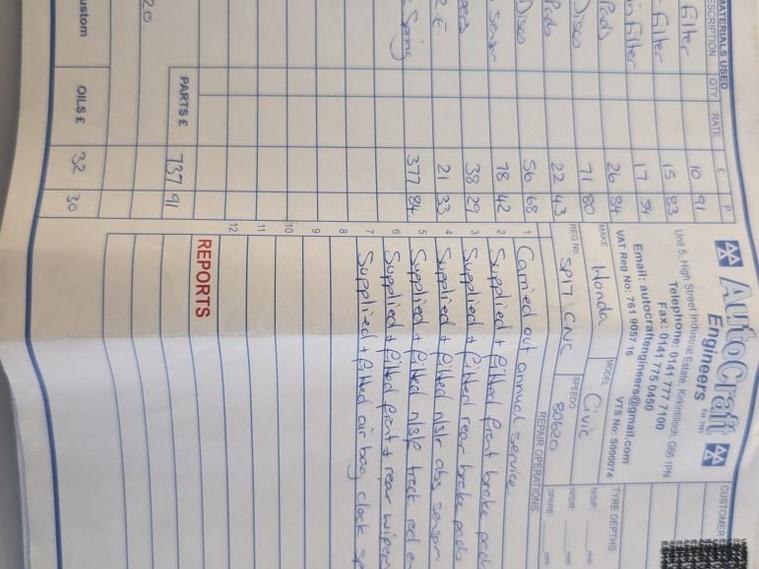 MATERIALS USED
DESCRIPTION QTY RATE £ P
Filter 10 91
Filter 15 83
Filter 17 94
Pads 26 84
Discs 71 80
Pads 22 43
Discs 56 68
Sensor 78 42
38 29
21 33
Spring 377 84
PARTS £ 737 91
20.
ustom OILS £ 32 30
AutoCraft
Engineers
Unit 5, High Street Industrial Estate, Kirkintilloch, G66 1PN
Telephone: 0141 777 7100
Fax: 0141 775 0450
Email: autocraftengineers@gmail.com
VAT Reg No: 761 9057 15 VTS No: S000074
CUSTOMER
MAKE Honda MODEL Civic TYRE DEPTHS
N/S/F mm
REG No. SP17 CNC SPEEDO 80620 N/S/R mm
SPARE mm
REPAIR OPERATIONS
1 Carried out annual service.
2 Supplied + fitted front brake pads
3 Supplied + fitted rear brake pads
4 Supplied + fitted n/s/r abs sensor
5 Supplied + fitted n/s/f track rod e
6 Supplied + fitted front + rear wipers
7 Supplied + fitted air bag clock sp
8
9
10
11
12
REPORTS